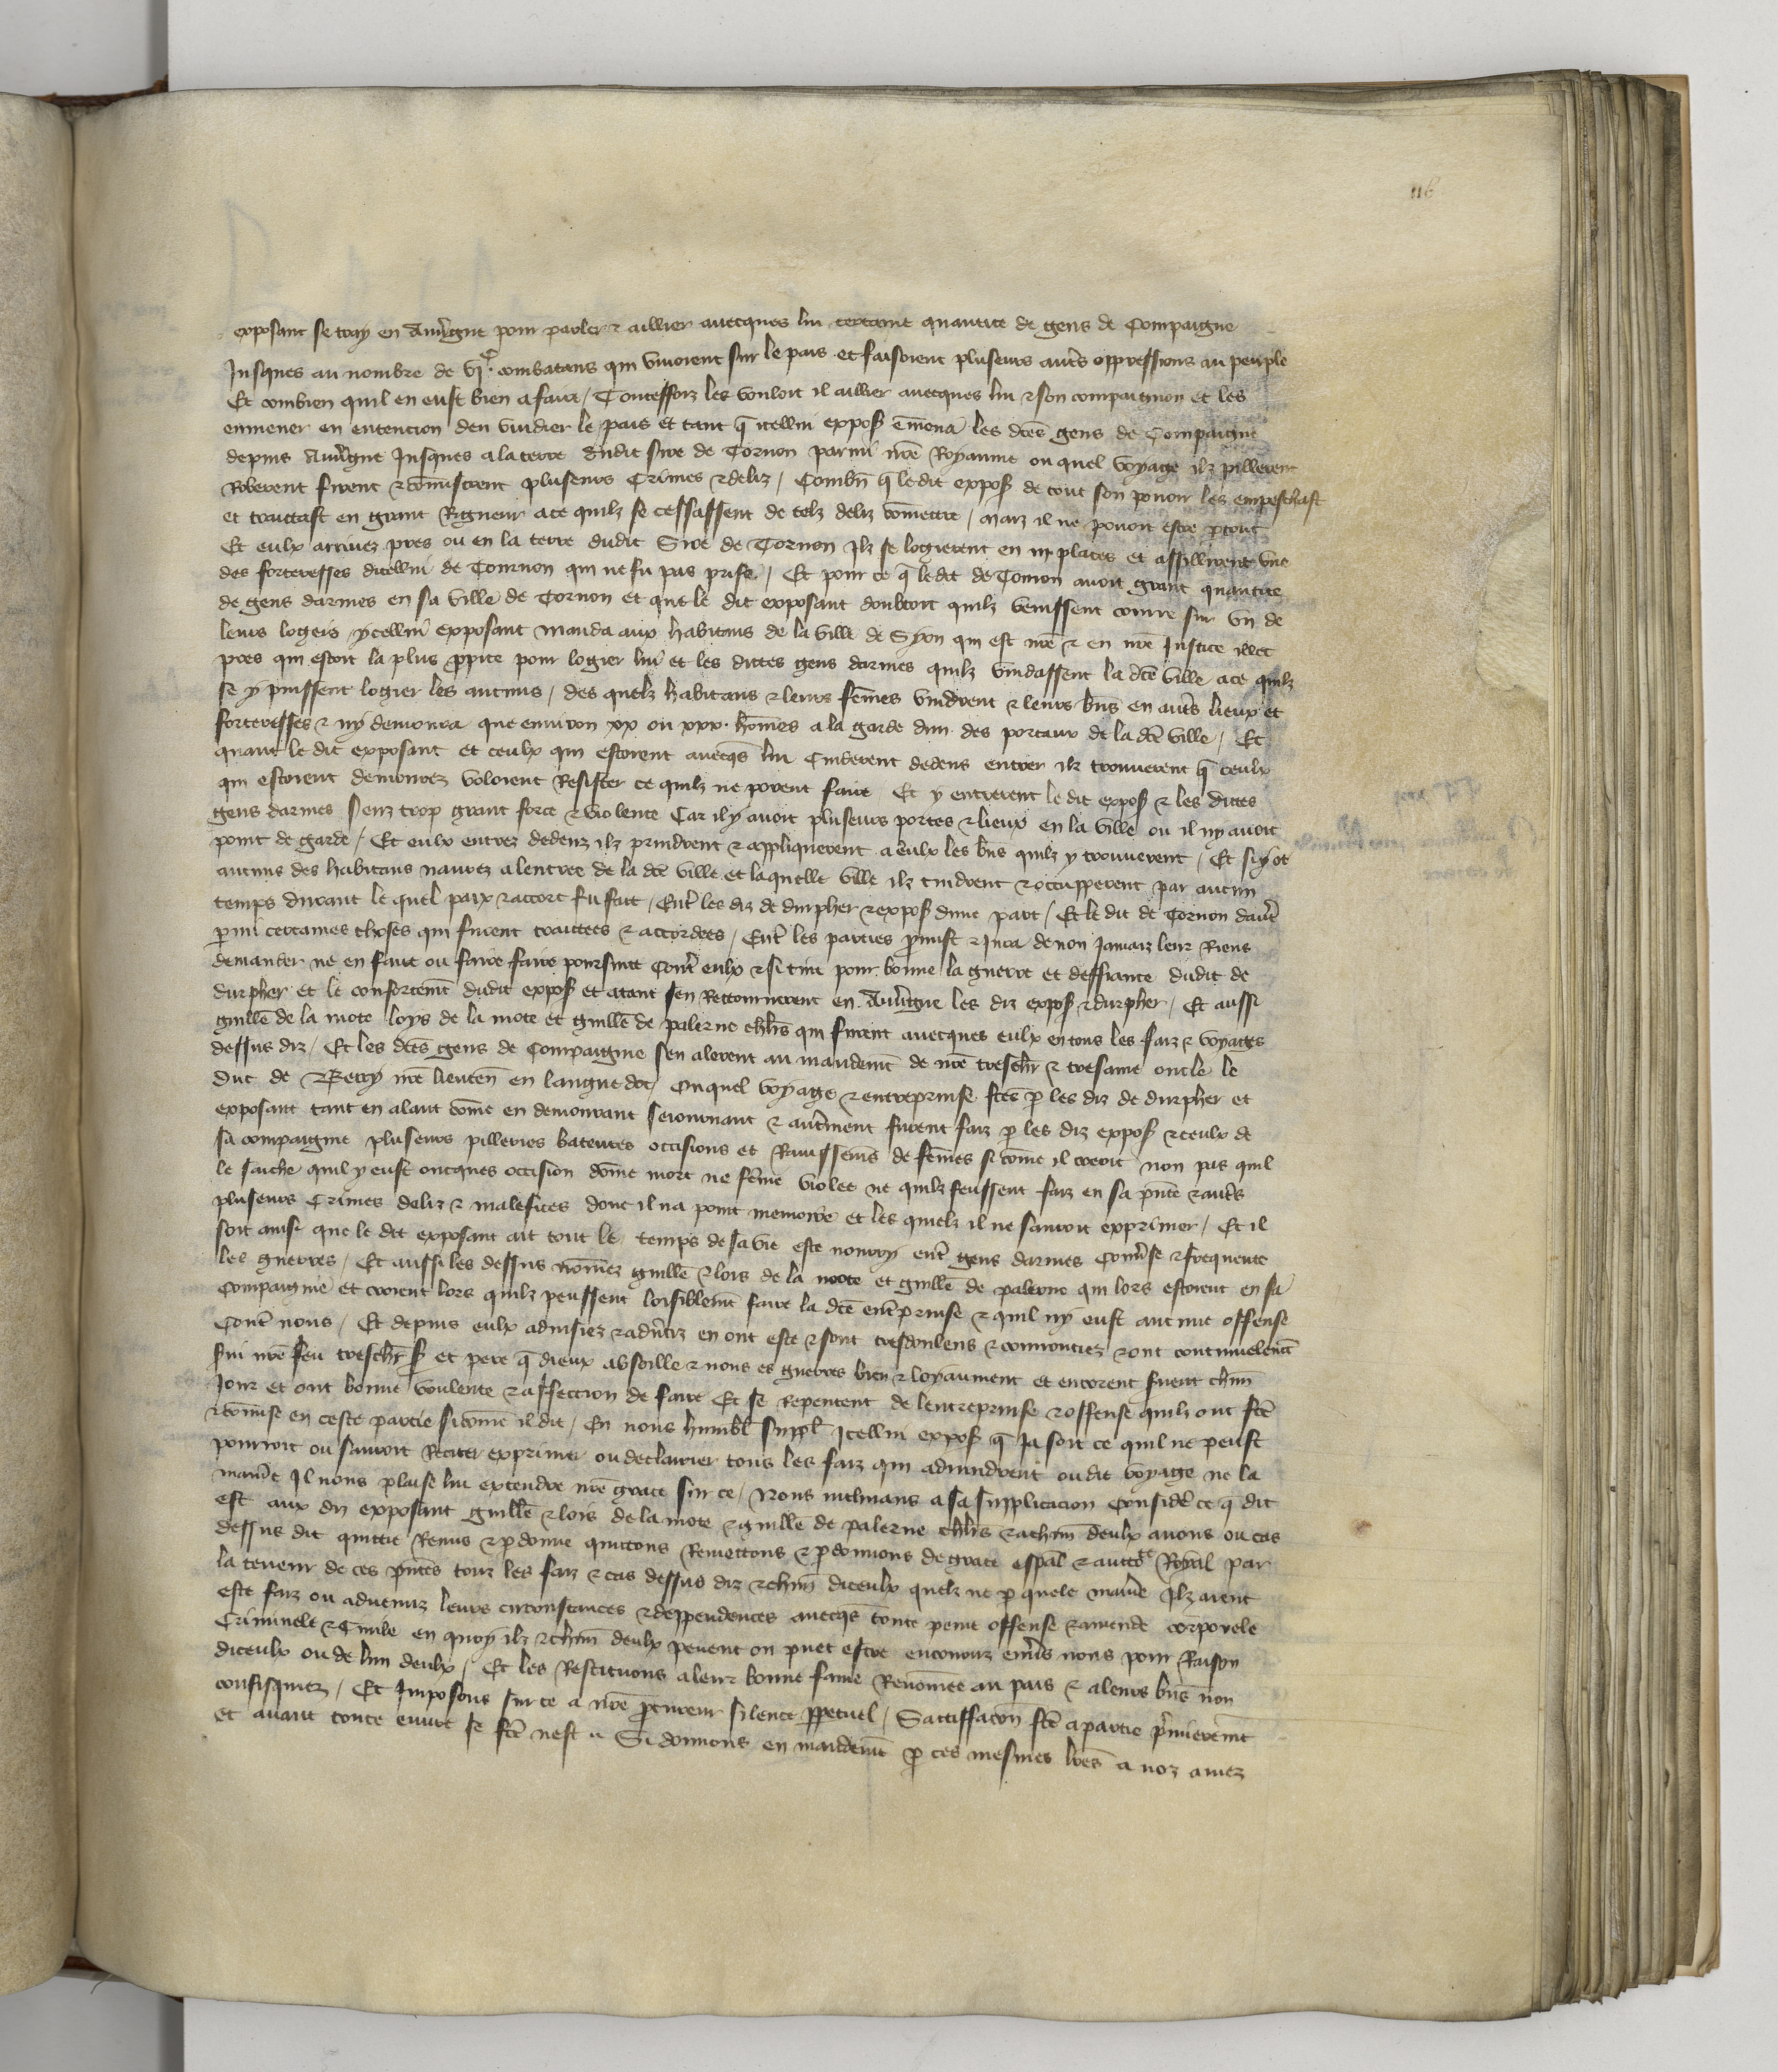 116
exposant se tray en Auv̄gne pour parler & aillier avecques lui certaine quantite de gens de Compaigne
Jusques au nombre de vjc. combatans qui vivoient sur le pais et faisoient pluseurs aut̄s oppressions au peuple
Et combien quil en eust bien a faire / Toutesfoiz les vouloit il aillier avecques lui & son compaignon et les
enmener en entencion den vuidier le pais et tant q̄ icellui expos̄ ēmena les dc̄es gens de Compaigne
depuis Auv̄gne Jusques a la terre dudit sire de Tornon parmi nr̄e Royaume ou quel voyage ilz pillerent
Roberent firent & cōmistrent pluseurs Crimes & deliz / Combn̄ q̄ le dit expos̄ de tout son povoir les empeschast
et traittast en grant Rigueur a ce quilz se cessassent de telz deliz cōmettre / Maiz il ne povoit estre p̄tout
Et eulx arrivez pres ou en la terre dudit Sire de Tornon Ilz se logierent en iij places et assillirent une
des forteresses dicellui de Tournon qui ne fu pas prise / Et pour ce q̄ le dit de Tornon avoit grant quantite
de gens darmes en sa ville de Tornon et que le dit exposant doubtoit quilz venissent courre sur un de
leurs logeis ycellui exposant manda aux habitans de la ville de Syon qui est nr̄e & en nr̄e Justice illec
pres qui estoit la plus p̄pice pour logier lui et les dittes gens darmes quilz vuidassent la dc̄e ville a ce quilz
se y puissent logier les aucuns / des quelz habitans & leurs fēmes vuidrent & leurs bn̄s en aut̄s lieux et
forteresses & ny demoura que environ xx ou xxx. hōmes a la garde dun des portaux de la dc̄e ville / Et
quant le dit exposant et ceulx qui estoient avecq̄s lui Cuiderent dedens entrer ilz trouverent q̄ ceulx
qui estoient demourez voloient Resister ce quilz ne porent faire Et y entrerent le dit expos̄ & les dittes
gens darmes senz trop grant force & violence Car il y avoit pluseurs portes & lieux en la ville ou il ny avoit
point de garde / Et eulx entrez dedenz ilz prindrent & appliquerent a eulx les bn̄s quilz y trouverent / Et si y ot
aucuns des habitans navrez a lentree de la dc̄e ville et laquelle ville ilz tindrent & occupperent par aucun
temps durant le quel paix & accort fu fait / Ent̄ les diz de durpher & expos̄ dune part / Et le dit de Tornon daut̄
p̄mi certaines choses qui furent traittees & accordees / Ent̄ les parties p̄mist & Jura de non Jamaiz leur Riens
demander ne en faire ou faire faire poursuite Cont̄ eulx & si tint pour bonne la guerre et deffiance dudit de
durpher et le confortemt̄ dudit expos̄ et atant sen Retournerent en Auv̄gne les diz expos̄ & durpher / Et aussi
guill̄e de la mote loys de la mote et guill̄e de palerne chl̄rs qui furent avecques eulx en tous les faiz & voyages
dessus diz / Et les dc̄es gens de Compaigne sen alerent au mandemt̄ de nr̄e treschr̄ & tresame oncle le
Duc de Berry nr̄e lieuten̄ en langue doc / Ouquel voyage & entreprinse fc̄es p̄ les diz de durpher et
exposant tant en alant cōme en demourant seiournant & aut̄ment furent faiz p̄ les diz expos̄ & ceulx de
sa compaigne pluseurs pilleries bateures occisions et Ravissemēs de fēmes si cōme il croit non pas quil
le sache quil y eust oncques occision dōme mort ne fēme violee ne quilz feussent faiz en sa p̄nce & aut̄s
pluseurs Crimes deliz & malefices dont il na point memoire et les quelz il ne sauroit exprimer / Et il
soit ainsi que le dit exposant ait tout le temps de sa vie este nourry ent̄ gens darmes Conv̄se & frequente
les guerres / Et aussi les dessus nōmez guill̄e & lois de la mote et guill̄e de palerne qui lors estoient en sa
Compaignie et croient lors quilz peussent loisiblemt̄ faire la dc̄e ent̄prinse & quil ny eust aucune offense
Cont̄ nous / Et depuis eulx advisez & adv̄tiz en ont este & sont tresdoulens & courrouciez & ont continuelemt̄
s̄vi nr̄e feu treschr̄ s̄ et pere q̄ dieux absoille & nous es guerres bien & loyaument et encorent s̄vent chūn
Jour et ont bonne voulente & affection de faire Et se Repentent de lentreprinse & offense quilz ont fc̄e
& cōmise en ceste partie si cōme il dit / En nous humbl̄ suppl̄ Icellui expos̄ q̄ Ja soit ce quil ne peust
pourroit ou sauroit Reciter exprimer ou declairier tous les faiz qui advindrent ou dit voyage ne la
manie͛ Il nous plaise lui extendre nr̄e grace sur ce / Nous inclinans a sa supplicacion Consideṝ ce q̄ dit
est aux diz exposant guill̄e & lois de la mote & guill̄e de palerne chl̄rs & a chūn deulx avons ou cas
dessus dit quitte Remis & p̄donne quittons Remettons & p̄donnons de grace esp̄al & auctote Royal par
la teneur de ces p̄ntes touz les faiz & cas dessus diz & chūn diceulx quelz ne p̄ quele manie͛ Ilz aient
este faiz ou advenuz leurs circonstances & deppendences avecq̄s toute peine offense & amende corporele
Criminele & Civile en quoy ilz & chūn deulx pevent ou puet estre encouruz env̄s nous pour Raison
diceulx ou de lun deulx / Et les Restituons a leur bonne fame Renōmee au pais & a leurs bn̄s non
confisquez / Et Imposons sur ce a nr̄e p̄cureur silence p̄petuel / Sattiffacc̄on fc̄e a partie p̄mieremt̄
et avant toute euvre se fc̄e nest .. Si donnons en mandemt̄ p̄ ces mesmes lr̄es a noz amez